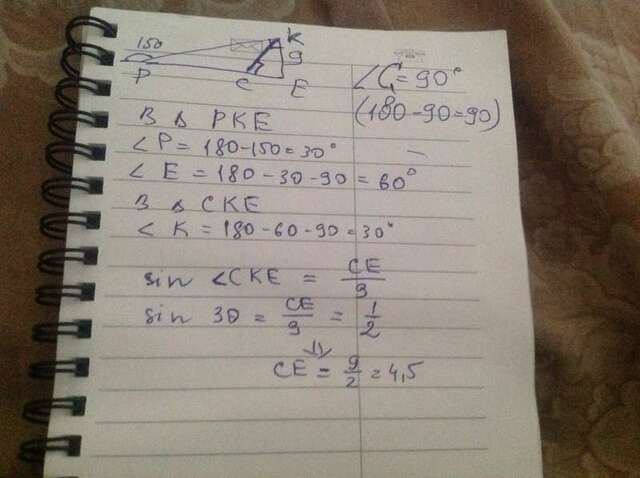 150
K
9
P
C
E
∠C = 90°
(180-90=90)
В Δ PKE
∠P = 180-150=30°
∠E = 180-30-90 = 60°
В Δ CKE
∠K = 180-60-90=30°
sin ∠CKE = CE/9
sin 30 = CE/9 = 1/2
⇓
CE = 9/2 = 4,5